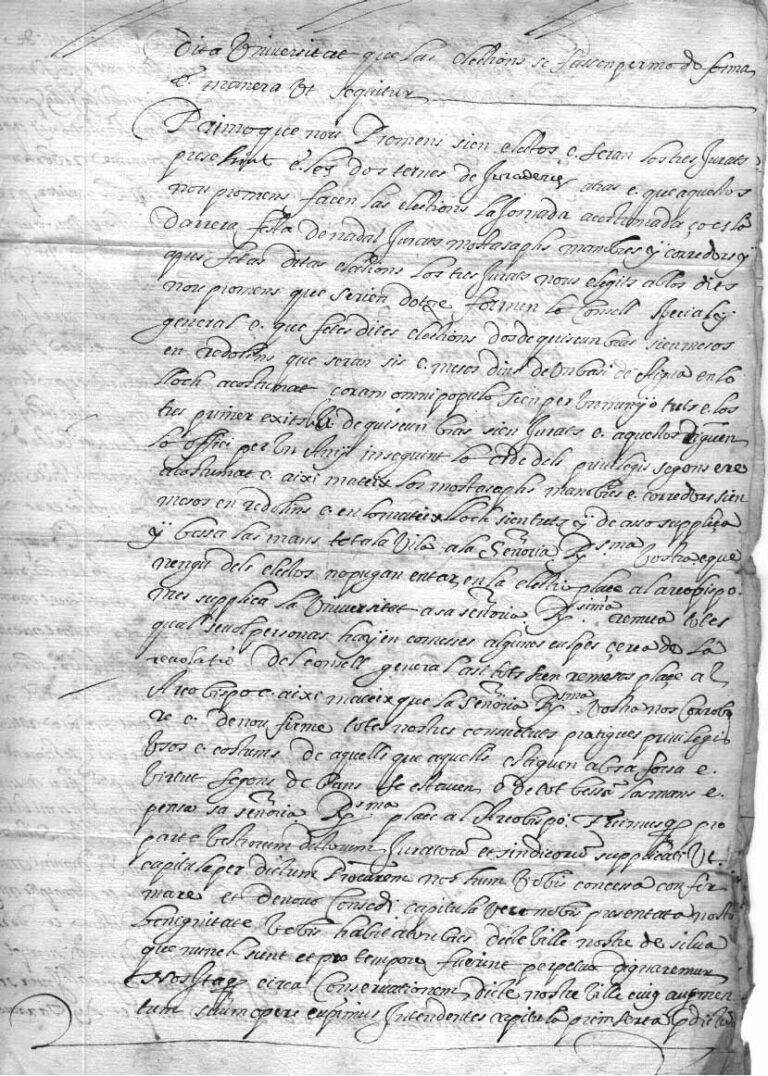 dita Universitat que las elections se fassen per mo de forma
e manera ut sequitur
Primo que nou Promens sien eletos e seran los tres Jurats
present e les dos ternes de Juraderies atras e que aquellos
nou promens facen las elections la Jornada acostumada ço es la
darrera festa de nadal Jurats mostasaphs manbres y corredors y
que fetas ditas elections los tres Jurats nous elegits ab los dits
nou promens que serien dotze formen lo Consell special y
general e que fetes dites elections dos de quiscun bras sien mesos
en redolins que seran sis e mesos dins de un basi de Aigua en lo
lloch acostumat coram omni populo sien per un minyo trets e los
tres primer exits hu de quiscun bras sien Jurats e aquellos tinguen
lo offici per un Any inseguint lo orde dels privilegis segons ere
acostumat e aixi mateix los mostasaphs manbres e corredors sien
mesos en redolins e en lo mateix lloch sien trets y de asso supplica
y bessa las mans tota la Vila a la Señoria Rsma vostra e que
nengu dels eletos no pugan entar en la electio place al areobispo.
mes supplica la Universitat a sa señoria Rsima remeta totes
qualsevol personas hajen comesses algunes culpes çerca de la
revolatio del consell general las tots sien remesos plaçe al
Areobispo e aixi mateix que la Señoria Rsma vostra nos Corrobo
re e de nou firme totes nostres consuetuts pratiques privilegis
Usos e costums de aquells que aquells estiguen ab sa forsa e
virtut segons de Vans se estaven e de tot bessa las mans e
pensa sa señoria Rsma place al Areobispo. Primusq pro
parte vestrorum dictorum Juratorum et sindicorum supplicati ut
capitula per dictum Procurem nostrum vobis concessa confir
mare et denovo Concedi capitula vero nobis presentata nostra
benignitate vobis habitatoribus dicte ville nostre de silva
que nunch sunt et pro tempore fuerint perpetuo dignaremur
Nos Itaq circa Conservationem dicte nostre ville eiusq augmen
tum summopere cupimus Intendentes capitula preinserta predicta